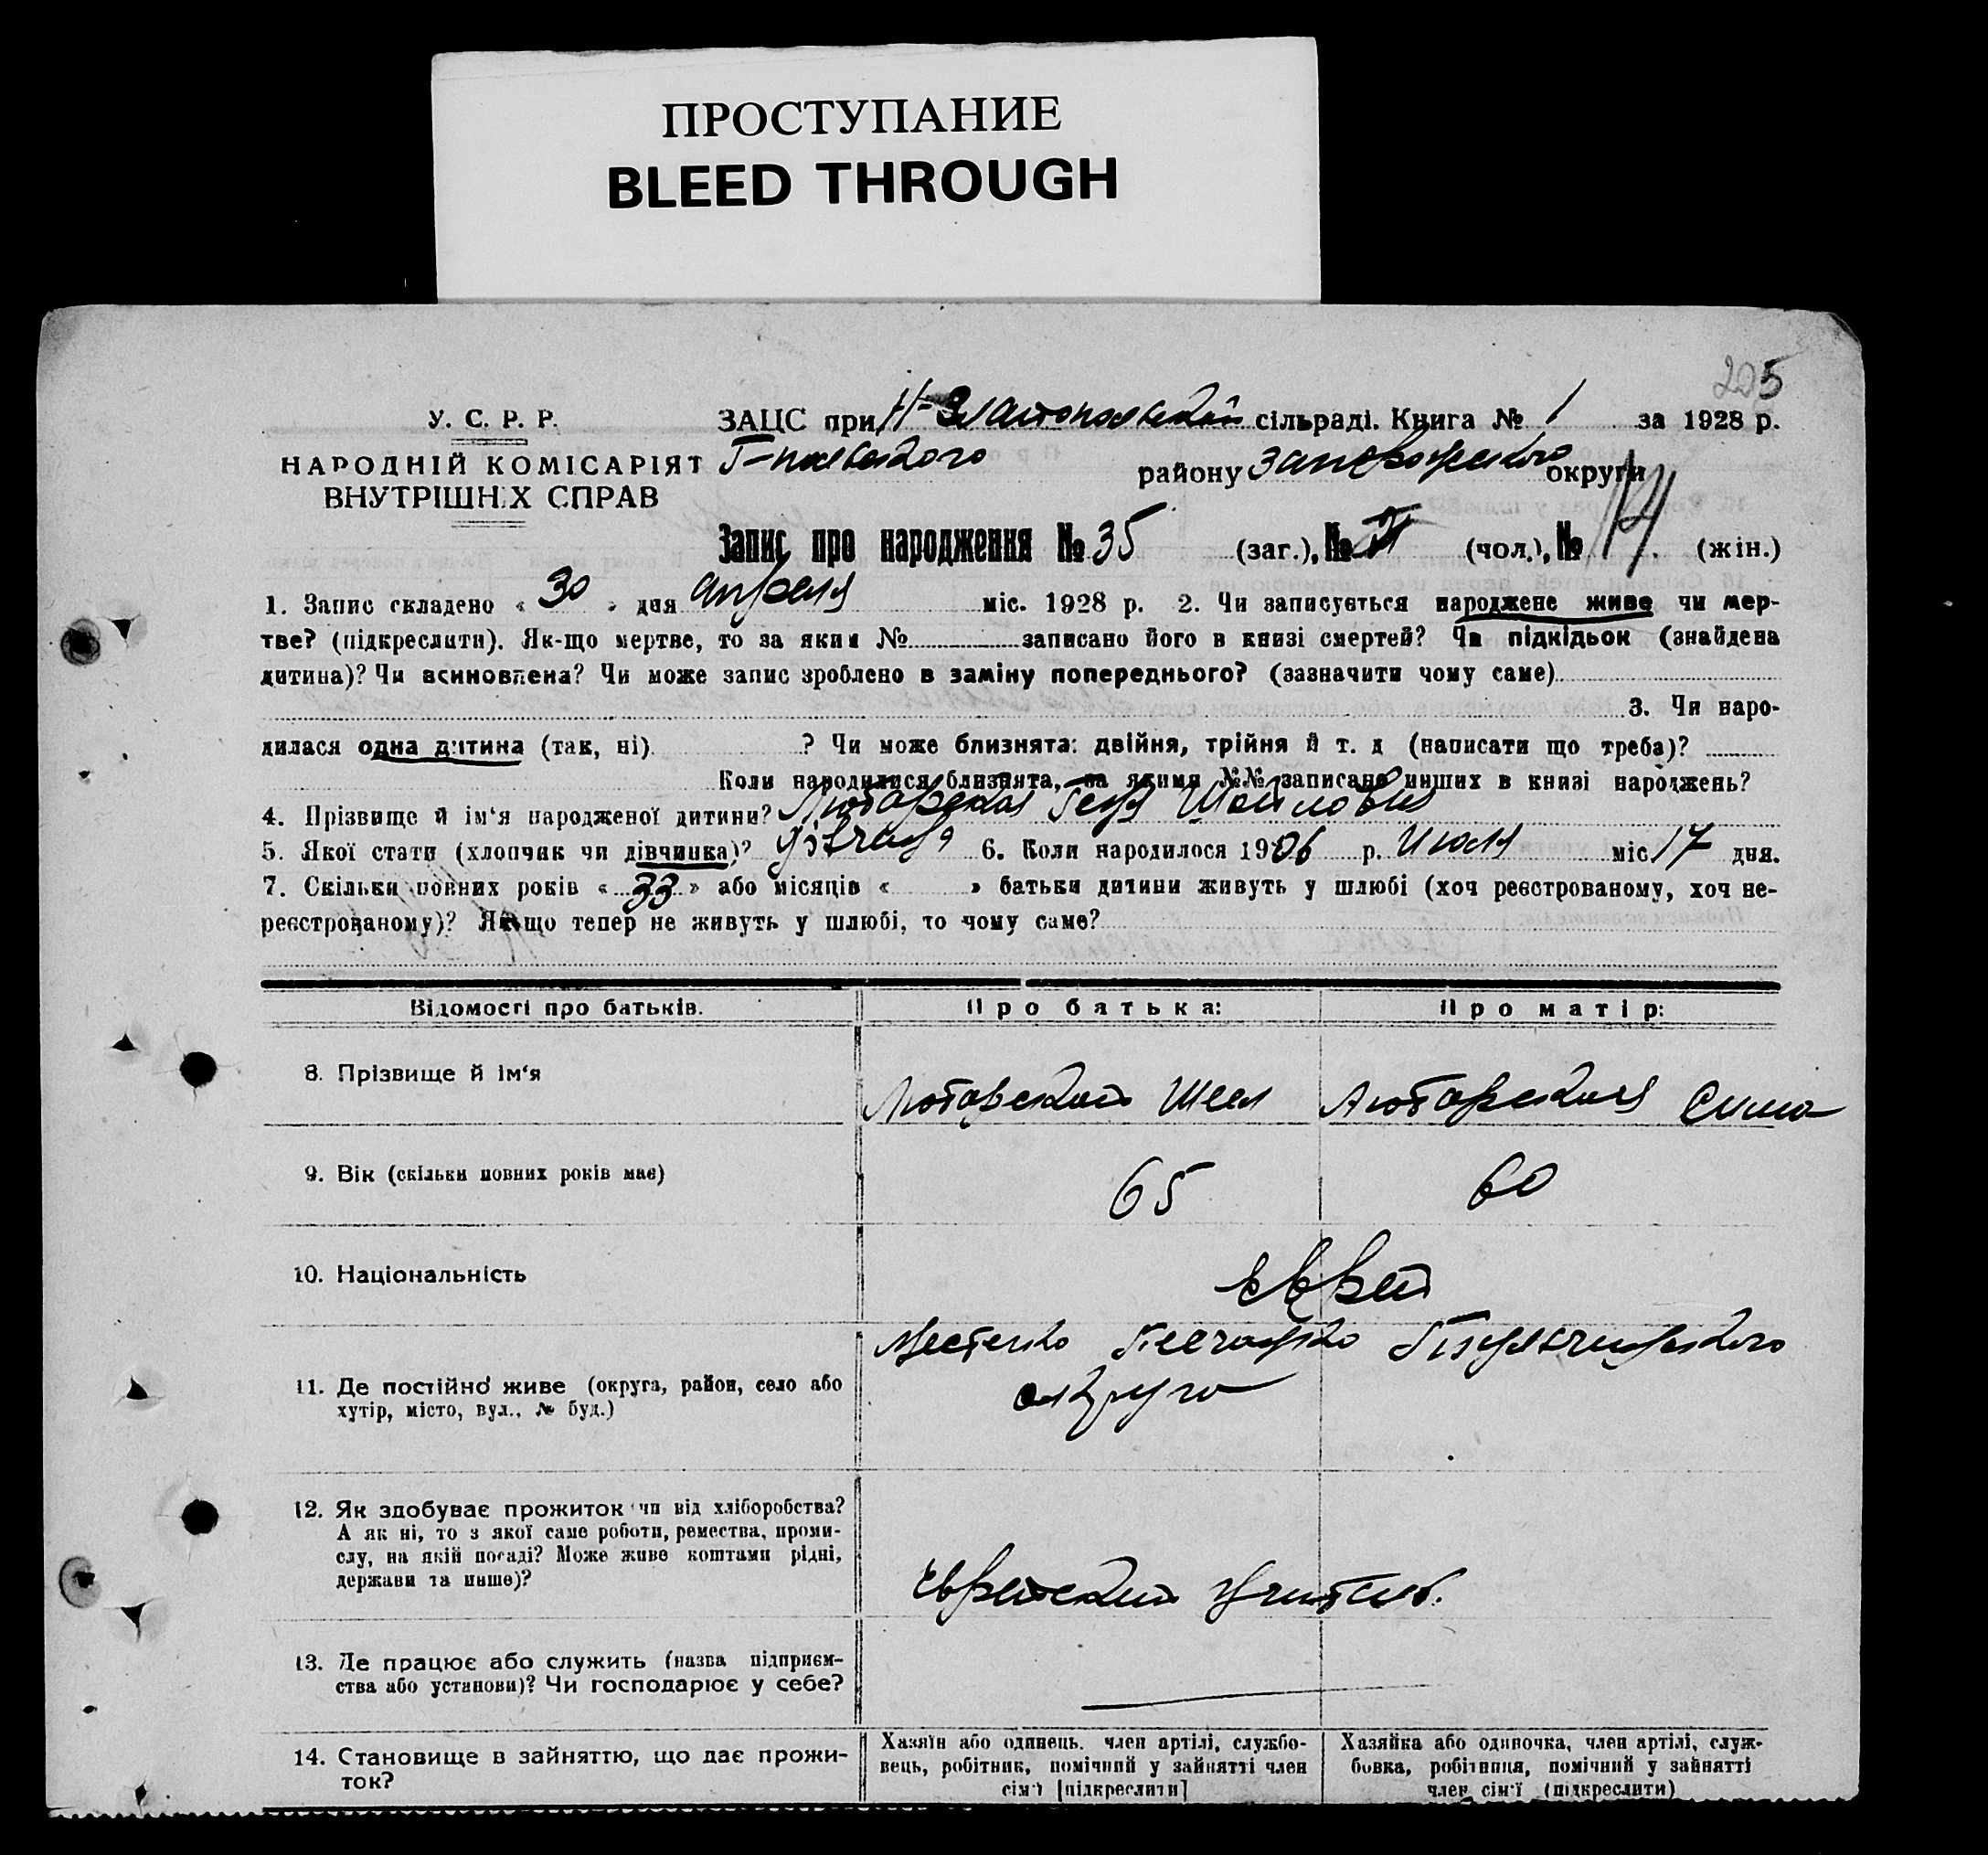 ПРОСТУПАНИЕ
BLEED THROUGH
205
У. С. Р. Р.
НАРОДНІЙ КОМІСАРІЯТ
ВНУТРІШНІХ СПРАВ
ЗАЦС при Н-Златопольской сільраді. Книга № 1 за 1928 р.
району Запорожского округи
Запис про народження № 35 (заг.), № (чол.), № 14. (жін.)
1. Запис складено « 30 » дня апреля міс. 1928 р. 2. Чи записується народжене живе чи мер-
тве? (підкреслити). Як-що мертве, то за яким № записано його в книзі смертей? Чи підкідьок (знайдена
дитина)? Чи всиновлена? Чи може запис зроблено в заміну попереднього? (зазначити чому саме)
3. Чи наро-
дилася одна дитина (так, ні) ? Чи може близнята: двійня, трійня й т. д (написати що треба)?
Коли народилися близнята, за якими №№ записано инших в книзі народжень?
4. Прізвище й ім‘я народженої дитини? Лютарская Геня Шейловна
5. Якої стати (хлопчик чи дівчинка)? 6. Коли народилося 1906 р. июля міс 17 дня.
7. Скільки повних років « 33 » або місяців « » батьки дитини живуть у шлюбі (хоч реєстрованому, хоч не-
реєстрованому)? Якщо тепер не живуть у шлюбі, то чому саме?
Відомості про батьків. Про батька: Про матір:
8. Прізвище й ім‘я Лютарский Шеел Лютарская Сима
9. Вік (скільки повних років має) 65 60
10. Національність еврей
11. Де постійно живе (округа, район, село або
хутір, місто, вул., № буд.)
Местечко Песчанко Тульчинского
округа
12. Як здобуває прожиток чи від хліборобства?
А як ні, то з якої саме роботи, ремества, проми-
слу, на якій посаді? Може живе коштами рідні,
держави та инше)?
еврейский учитель.
13. Де працює або служить (назва підприєм-
ства або установи)? Чи господарює у себе?
14. Становище в зайняттю, що дає прожи-
ток?
Хазяїн або одинець. член артілі, службо-
вець, робітник, помічний у зайнятті член
сім‘ї [підкреслити]
Хазяйка або одиночка, член артілі, служ-
бовка, робітниця, помічний у зайнятті
член сім‘ї (підкреслити)